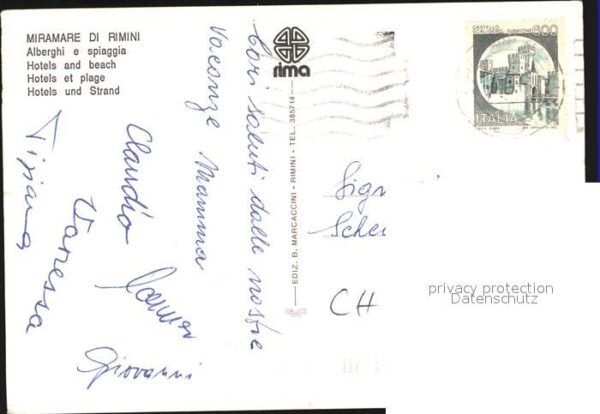 MIRAMARE DI RIMINI
Alberghi e spiaggia
Hotels and beach
Hotels et plage
Hotels und Strand
rima
CASTELLO
SCALIGERO, SIRMIONE
300
ITALIA
Cari saluti dalle nostre
Vacanze Mamma
Claudio
Vanessa
Tiziana
Giovanni
EDIZ. B. MARCACCINI - RIMINI - TEL. 385714
Sig
Sche
CH
privacy protection
Datenschutz